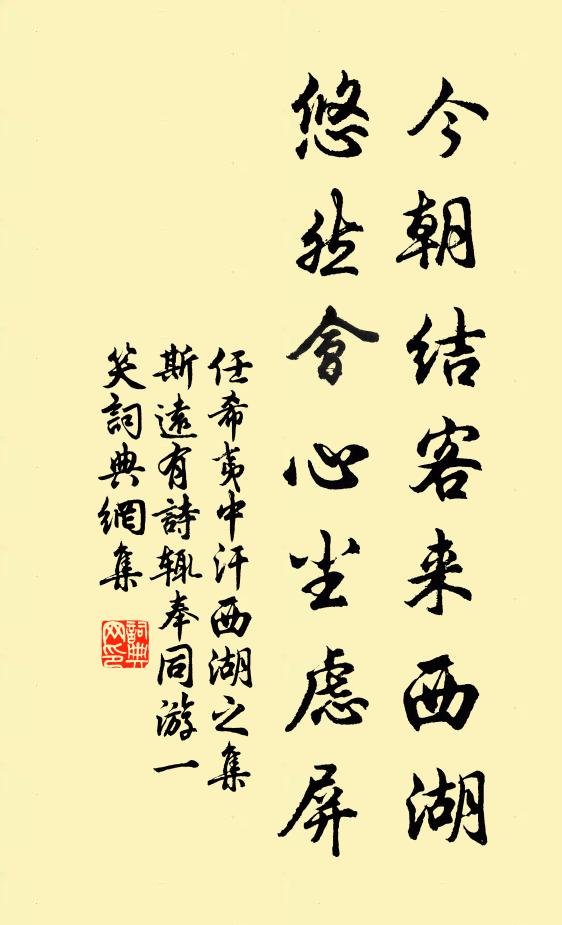 今朝結客来西湖
悠然會心尘慮屏
任希夷中汗西湖之集
斯遠有詩辄奉同游一
笑詞典網集
詞典網印